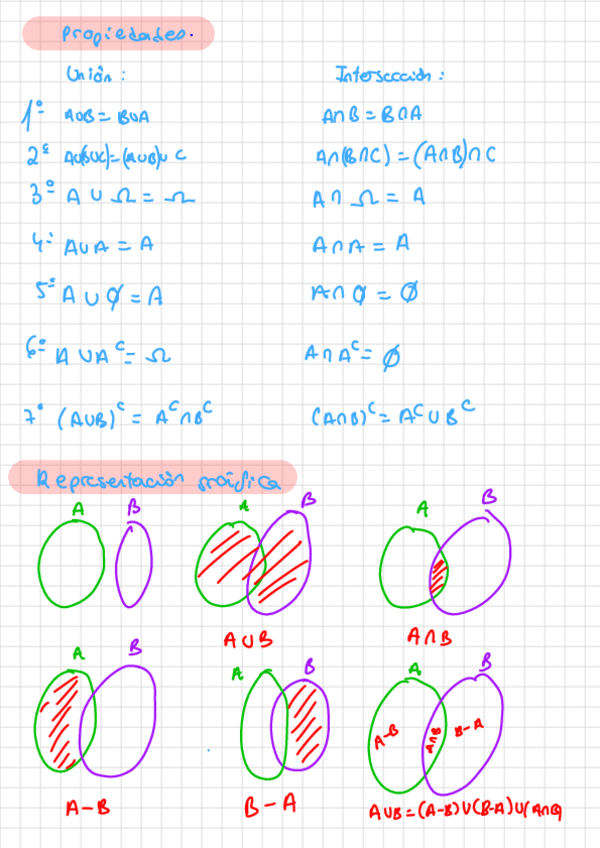 Propiedades.
Unión: Intersección:
1º A∪B = B∪A A∩B = B∩A
2º A∪(B∪C)=(A∪B)∪C A∩(B∩C) = (A∩B)∩C
3º A ∪ Ω = Ω A∩ Ω = A
4º A∪A = A A∩A = A
5º A ∪ ∅ = A A∩ ∅ = ∅
6º A ∪ Aᶜ = Ω A∩Aᶜ = ∅
7º (A∪B)ᶜ = Aᶜ∩Bᶜ (A∩B)ᶜ = Aᶜ∪Bᶜ
Representación gráfica
A B A B A B
A∪B A∩B
A B A B A B
A-B A∩B B-A
A-B B-A A∪B=(A-B)∪(B-A)∪(A∩B)